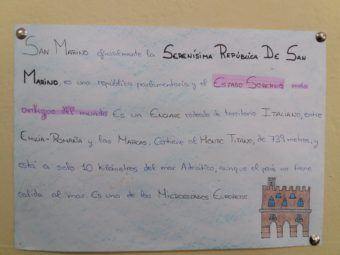 San Marino oficialmente la Serenísima República De San
Marino, es una república parlamentaria y el Estado Soberano más
antiguo del mundo Es un Enclave rodeado de territorio Italiano, entre
Emilia-Romaña y las Marcas. Contiene al Monte Titano, de 739 metros, y
está a solo 10 kilómetros del mar Adriático, aunque el país no tiene
salida al mar. Es uno de los Microestados Europeos